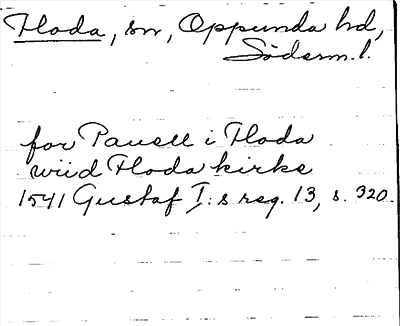 Floda, sn, Oppunda hd,
Söderm. l.
for Pauell i Floda
wiid Floda kirke
1541 Gustaf I:s reg. 13, s. 320.